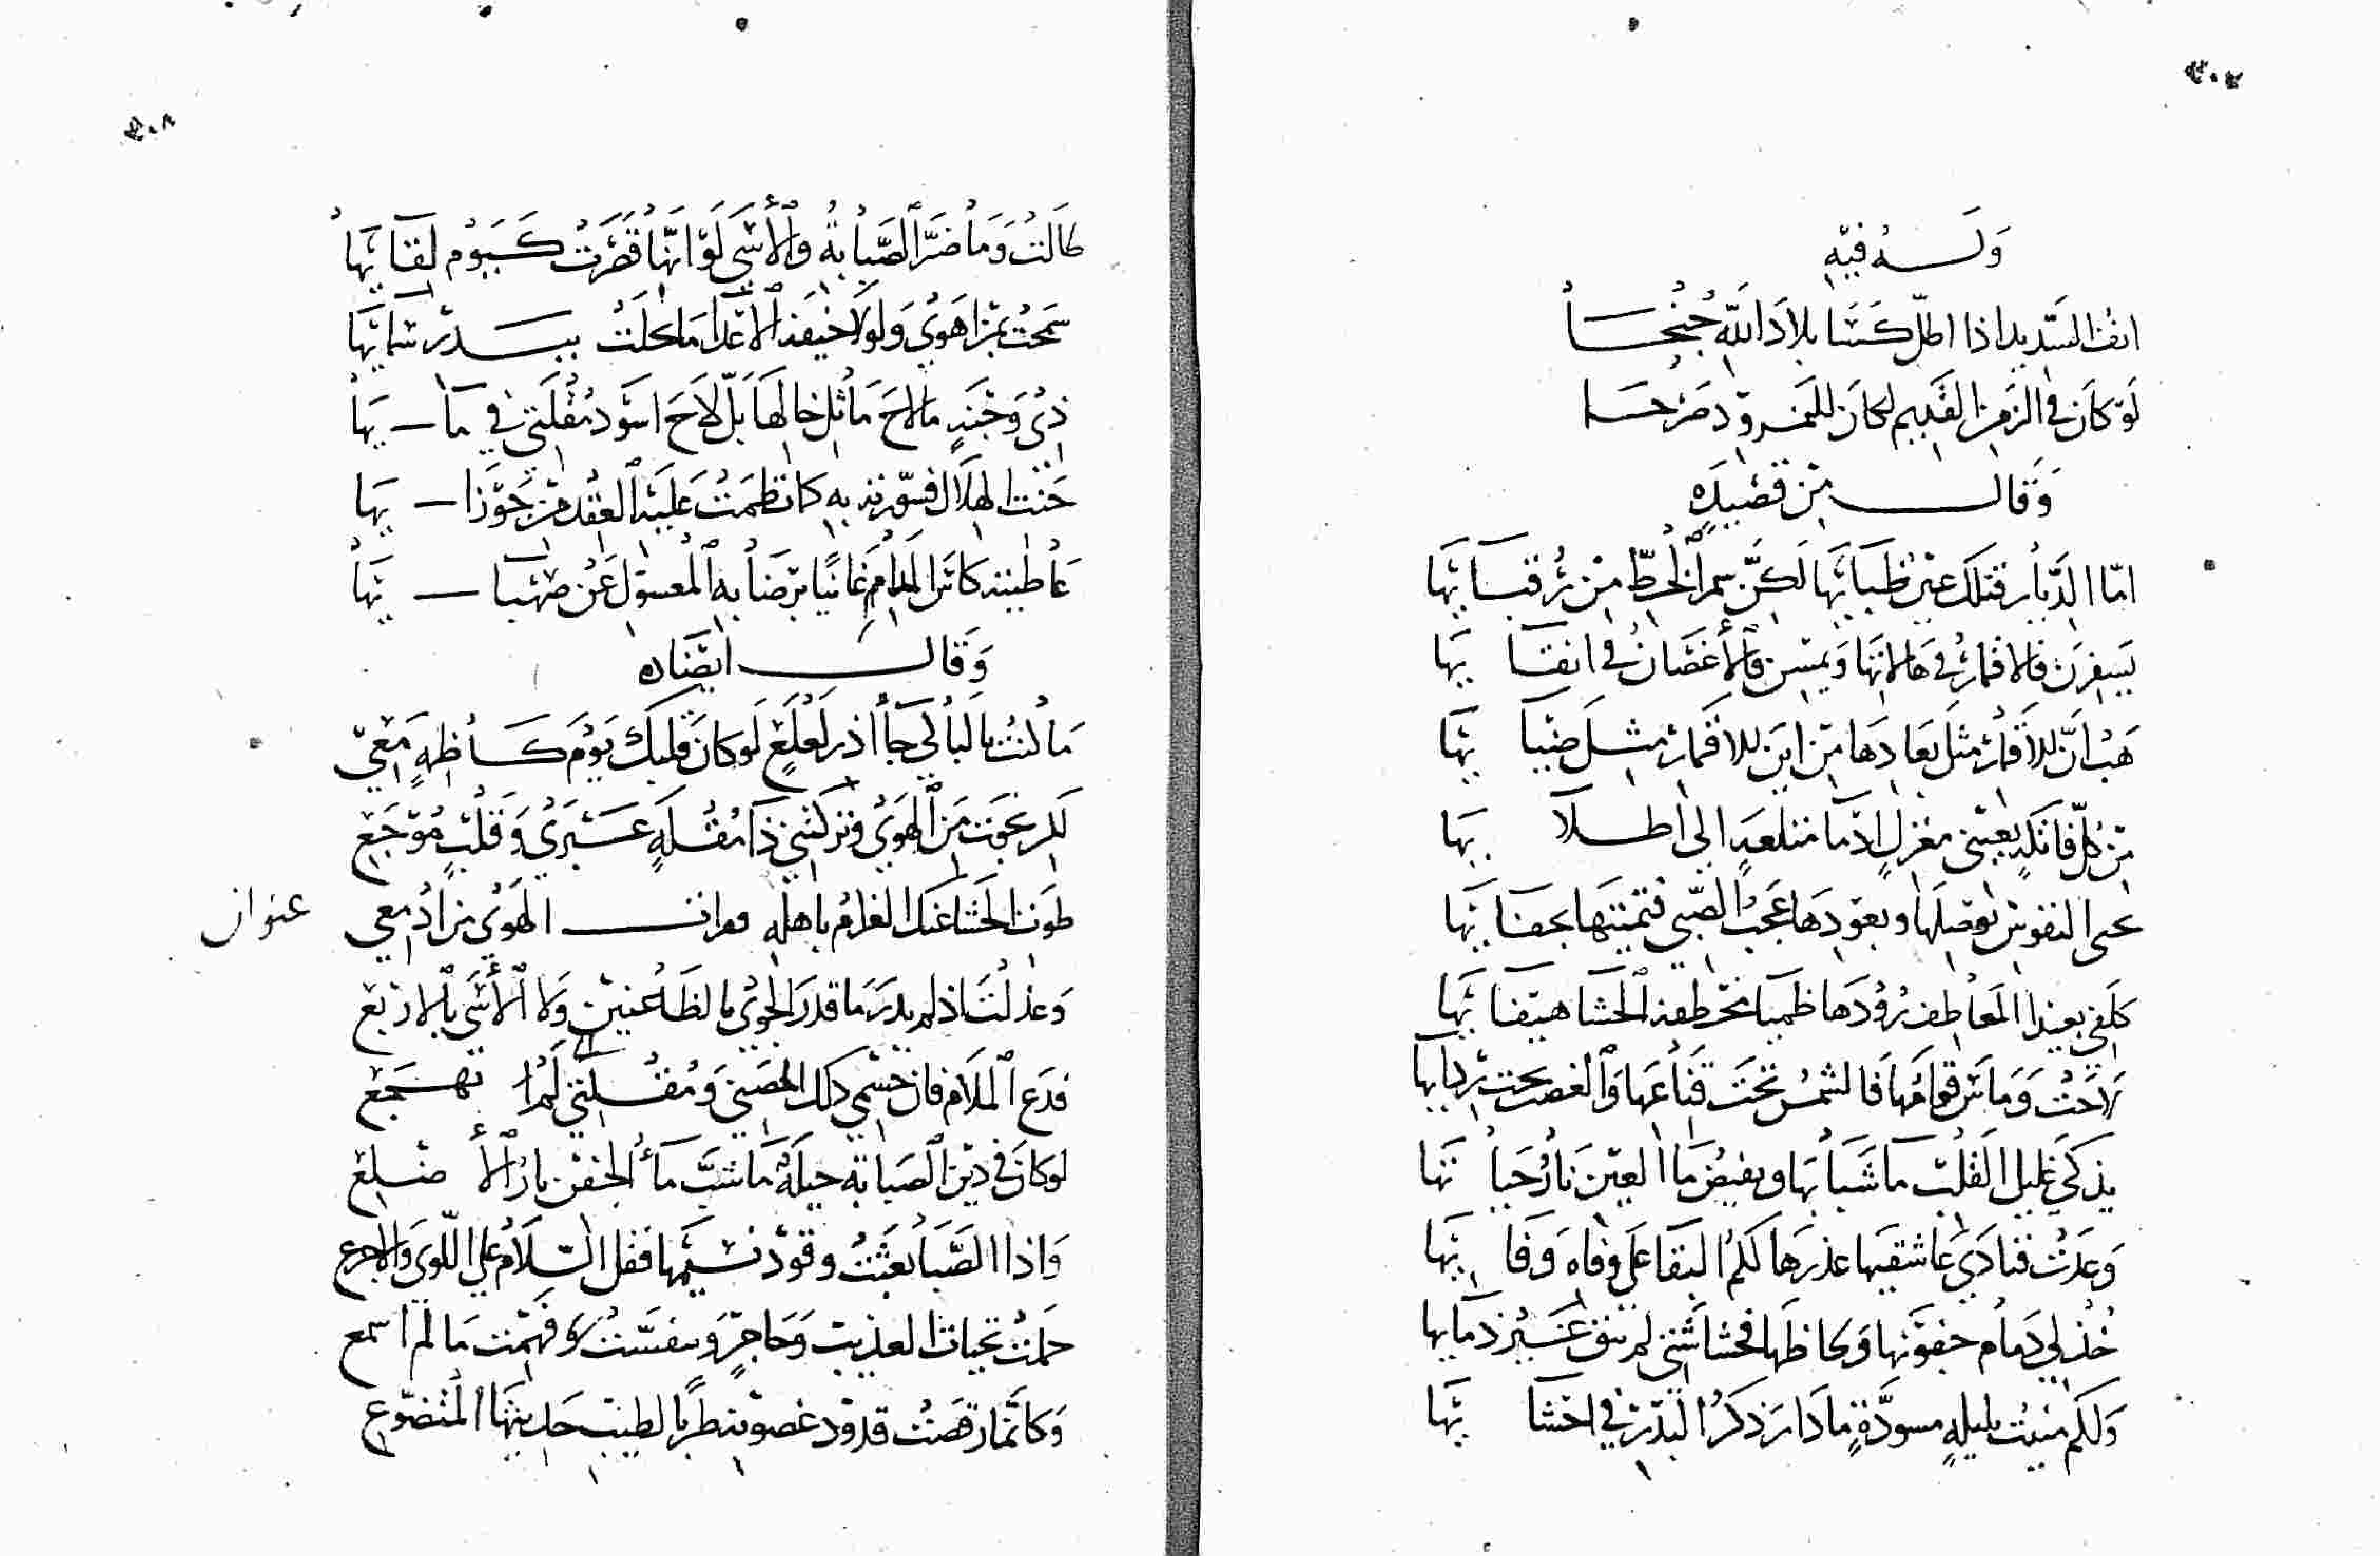 ٣٠٧
وله فيه
انف السديد اذا اطل كسا بلاد الله جنحا
لو كان في الزمن القديم لكان للنمرود صرحا
وقال من قصيده
اما الديار قتلك عين ظبايها لكن سمر الخط من رقبايها
يسفرن فالاقمار في هالاتها ويمسن فالاغصان في انقايها
هب ان للاقمار مثل بعادها من اين للاقمار مثل ضيايها
من كل فاتكة بعيني مغزل ادما متلعة الى اطلايها
تحى النفوس بوصلها ويعودها عجب الصبى فتميتها بجفايها
كلفي بميدا المعاطف رودها ظميا مخطفة الحشا هيفايها
لاحت وماس قوامها فالشمس تحت قناعها والغصن تحت ردايها
يذكي غليل القلب ما شبابها ويفيض ما العين نار حيايها
وعدت فنادى عاشقيها غدرها لكم البقا على وفاه وفايها
خذ لي دمام جفونها ولحاظها فحشاشتي لم تبق غير دمايها
ولكم منيت بليلة مسودة مادار ذكر البدر في احشايها
٣٠٨
طالت وما ضر الصبابة والأسى لو انها قصرت كيوم لقايها
سمحت بمن اهوى ولولا خيفة الاعدا ما بخلت ببدر سمايها
ذي وجنة ما لاح ماثل خالها بل لاح اسود مقلتي في مايها
خنت الهلال فسورته به كما نظمت عليه العقد من جوزايها
عاطيته كاس المدام غانيا برضابه المعسول عن صهبايها
وقال ايضا
ما كنت بالبالي جآذر لعلع لو كان قلبك يوم كاظمة معي
لكن نجوت من الهوى وتركتني ذا مقلة عبرى وقلب موجع
طوت الحشا عنك الغرام باهله وقرات الهوى من ادمعي
عنوان
وعذلت اذ لم يدر ما قدر الجوى بالظاعنين ولا الأسى بالاربع
فدع الملام فان جسمي ذلك المضنى ومقلتي لما تهجع
لو كان في دين الصبابة حيلة ما شب مآ الجفن نار الأضلع
واذا الصبا بعثت وقود نسيمها فقل السلام على اللوى والاجرع
حملت تحيات العذيب وحاجر وتنفست وفهمت ما لم اسمع
وكانما رقصت قدود غصونه طربا لطيب حديثها المتضوع